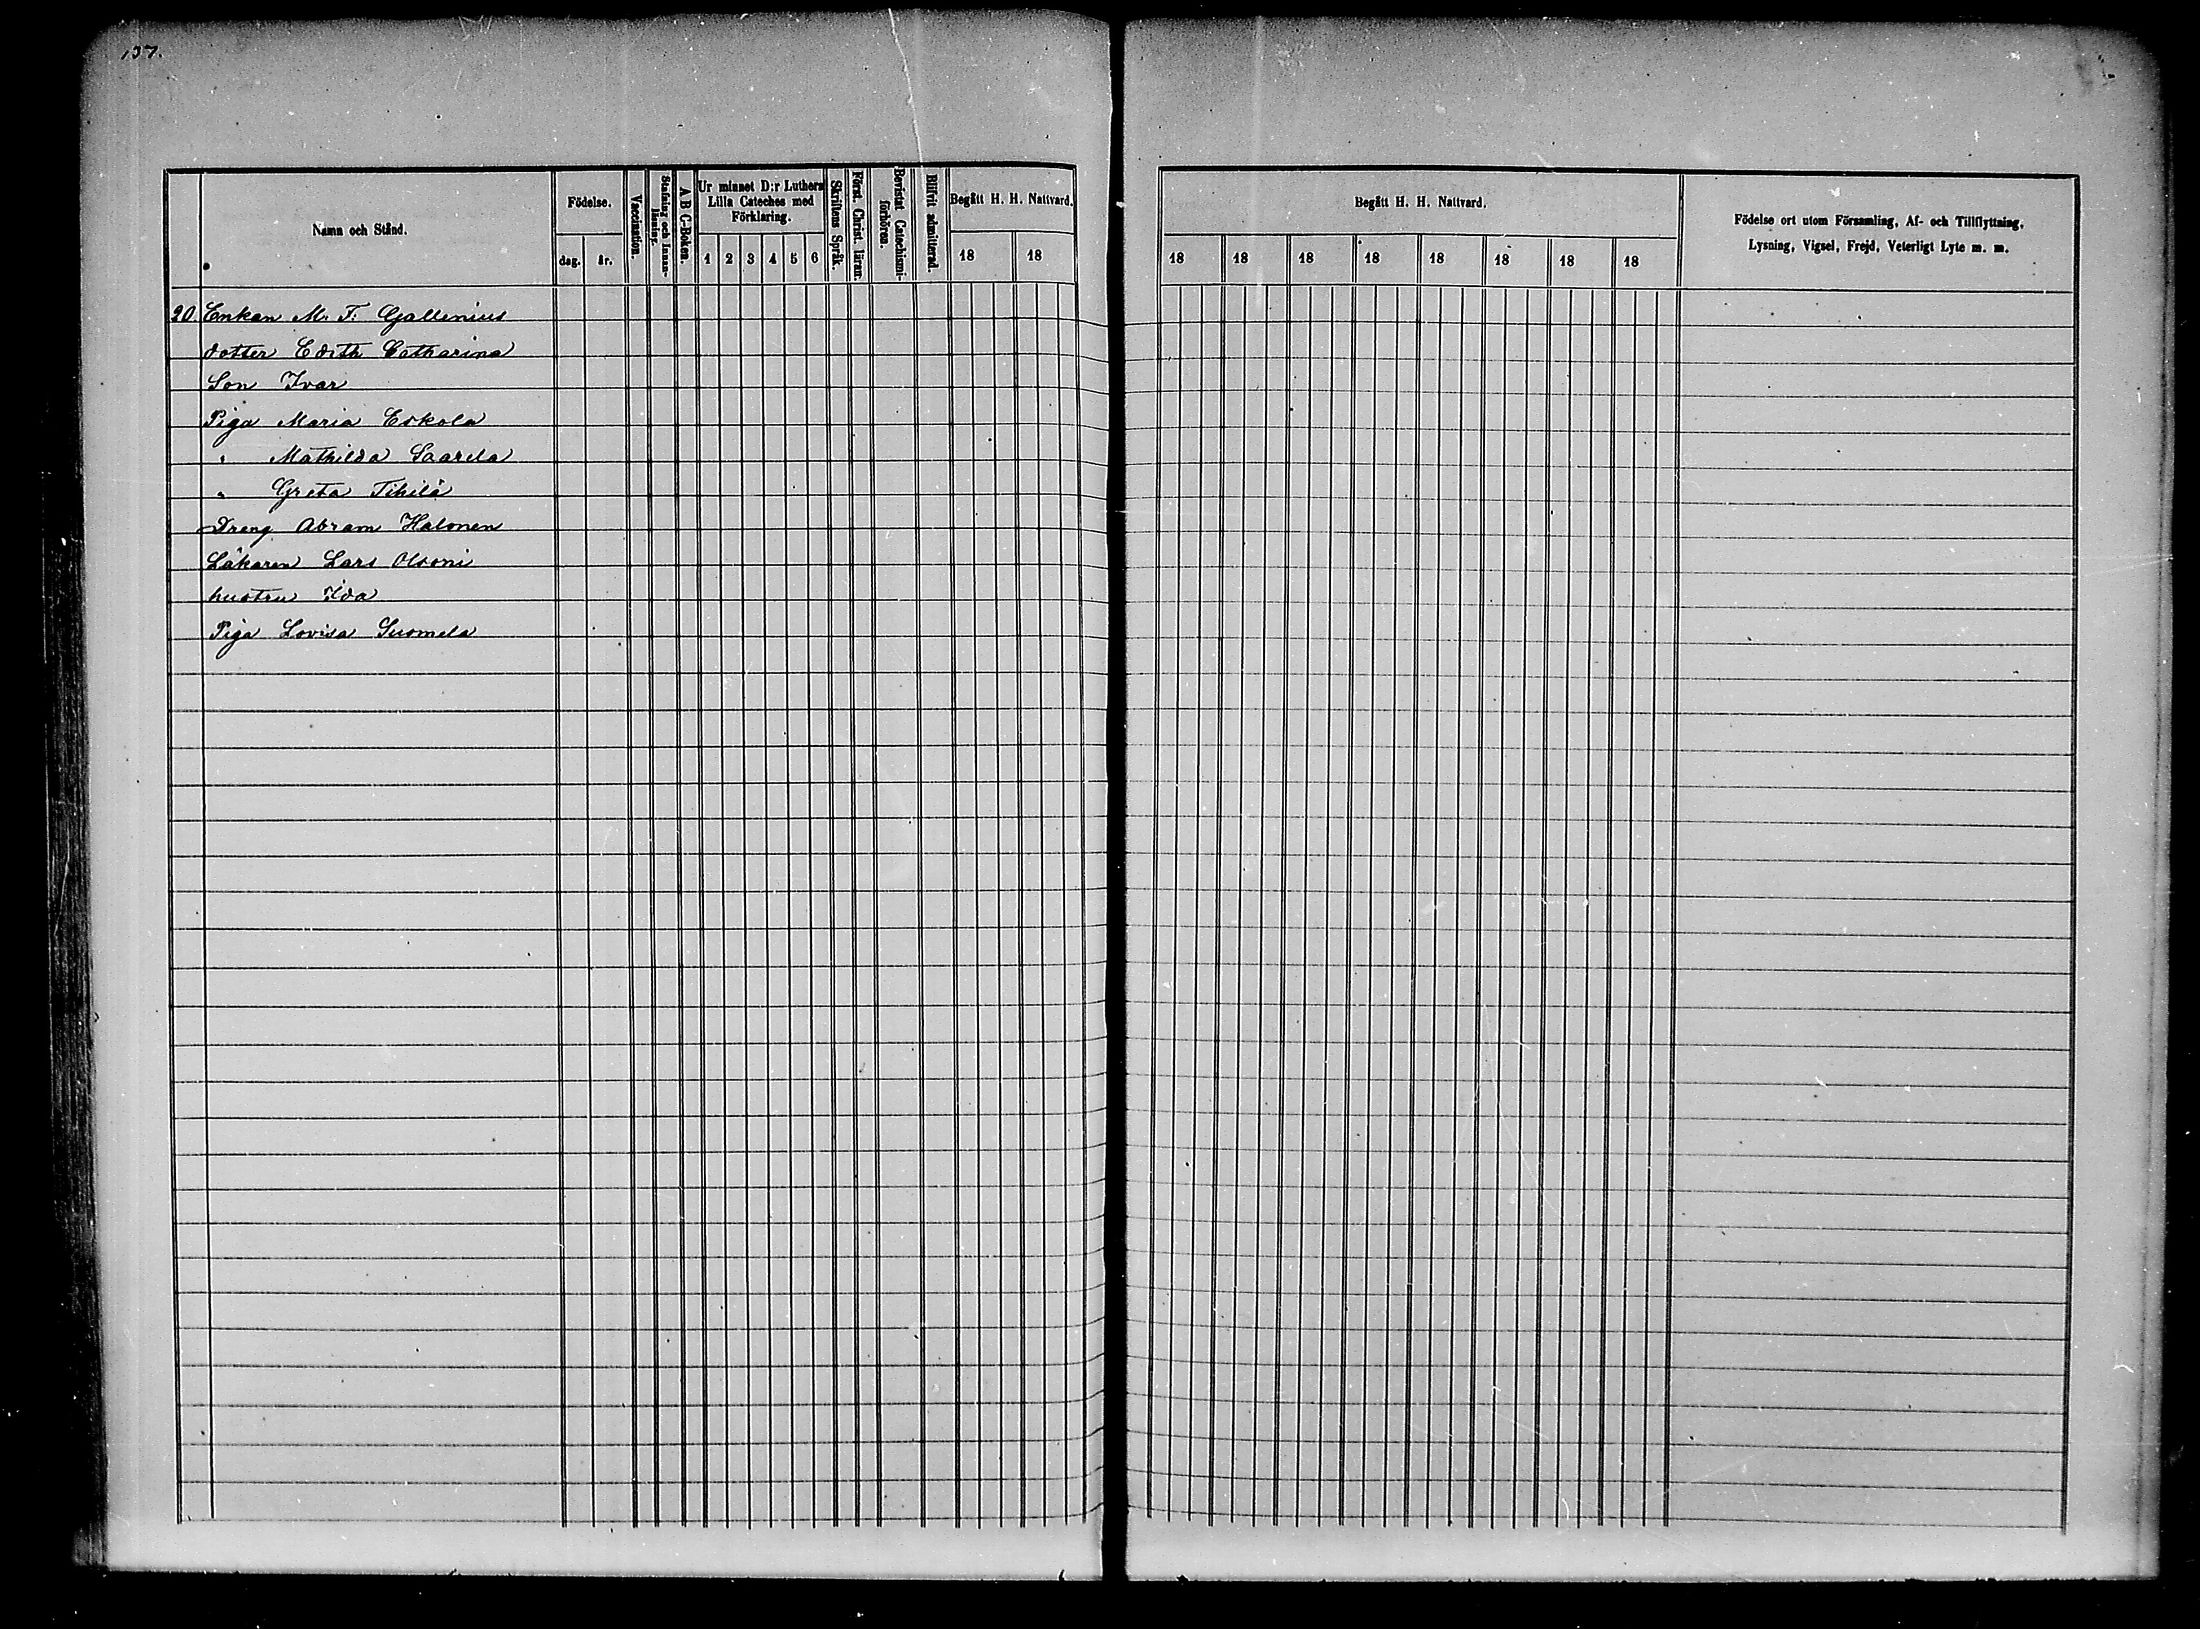 137.
Namn och Stånd.
Födelse.
dag.
år.
Vaccination.
Stafning och Innan-
läsning.
A B C-Boken.
Ur minnet D:r Luthers
Lilla Cateches med
Förklaring.
1 2 3 4 5 6
Skriftens Språk.
Först. Christ. läran.
Bevistat Catechismi-
förhören.
Blifvit admitterad.
Begått H. H. Nattvard.
18 18
Begått H. H. Nattvard.
18 18 18 18 18 18 18 18
Födelse ort utom Församling, Af- och Tillflyttning,
Lysning, Vigsel, Frejd, Veterligt Lyte m. m.
20. Enkan M. F. Gallenius
dotter Edith Catharina
Son Ivar
Piga Maria Eskola
" Mathilda Saarela
" Greta Tihilä
Dreng Abram Halonen
Läkaren Lars Olsoni
hustru Ida
Piga Lovisa Suomela